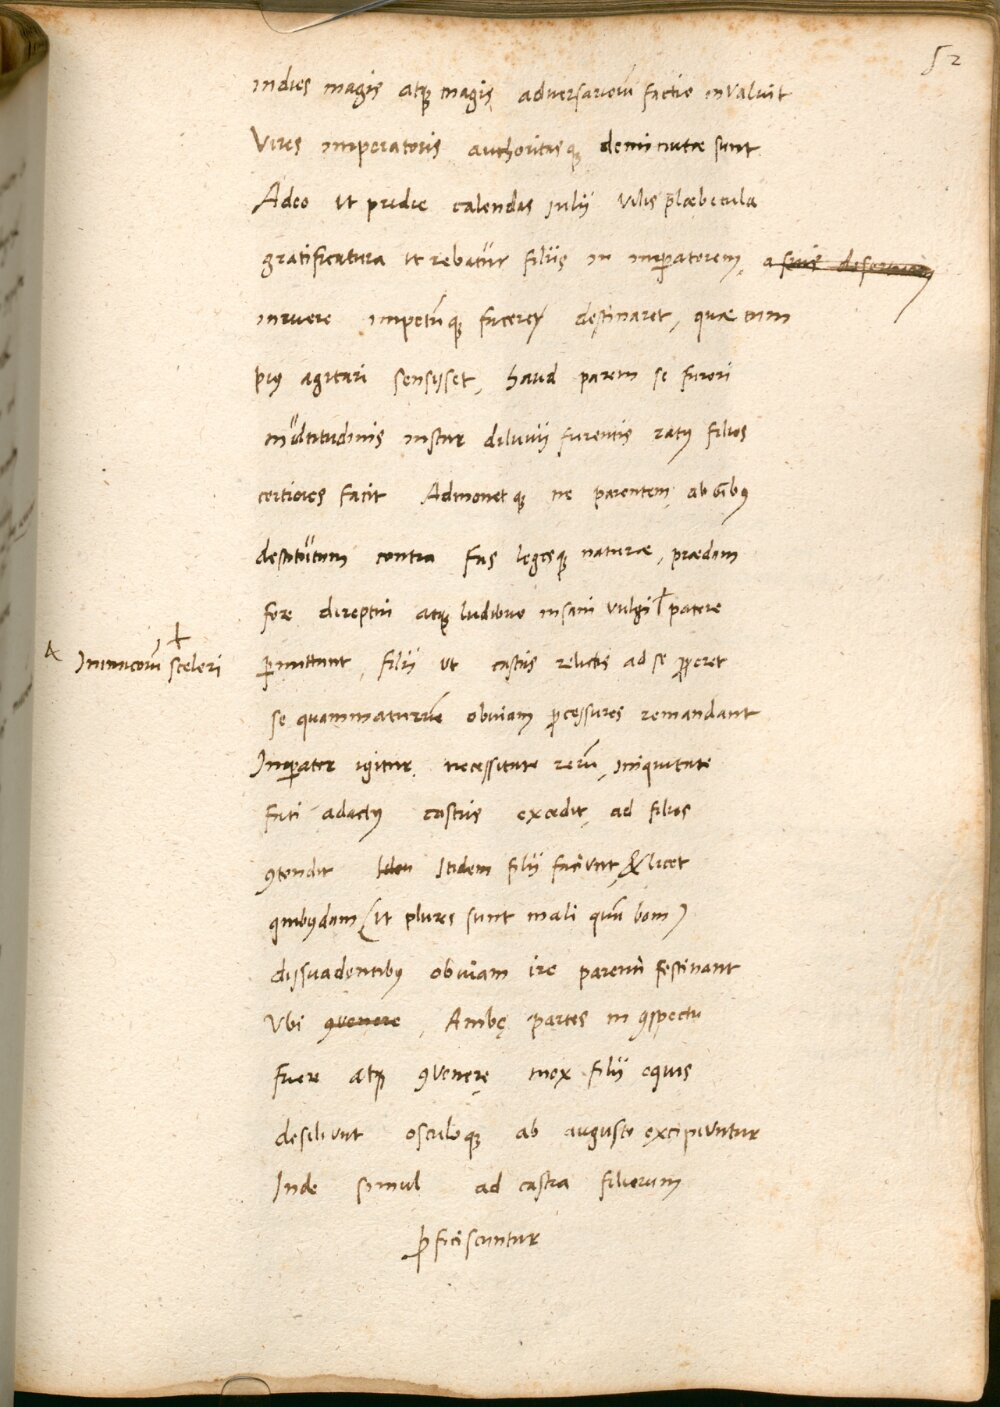 52
indies magis atq magis adversariorū factio invaluit
Vires imperatoris authoritasq deminutæ sunt
Adeo ut pridie calendas iulij vilis plæbecula
gratificatura ut rebatur filijs in imperatorem, a suis desertum
inruere impetūq facere destinaret, quæ cum
pius agitari sensisset, haud parem se furori
multitudinis instar diluvij furentis ratus filios
certiores facit Admonetq ne parentem ab oībus
destitutum contra fas legesq naturæ, prædam
fore direptui atq ludibrio insani vulgi patere
& Inimicorū sceleri
permittant, filij ut castris relictis ad se properet
se quammaturrīe obviam processures remandant
Imperator igitur necessitate rerū, iniquitate
fati adactus castris excedit, ad filios
contendit Iden Itidem filij faciunt, & licet
quibusdam (ut plures sunt mali quam boni)
dissuadentibus obviam ire parenti festinant
Vbi convenere, Ambę partes in conspectu
fuere atq convenere mox filij equis
desiliunt osculoq ab augusto excipiuntur
Inde simul ad castra filiorum
proficiscuntur